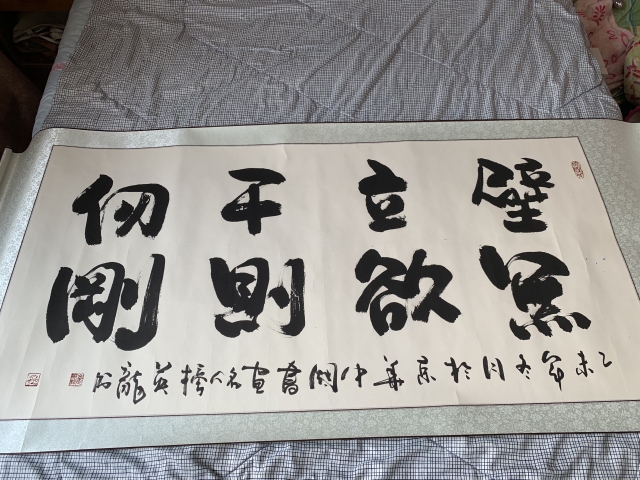 壁立千仞
無欲則剛
乙未年冬月於京華中國書画名人榜英龍